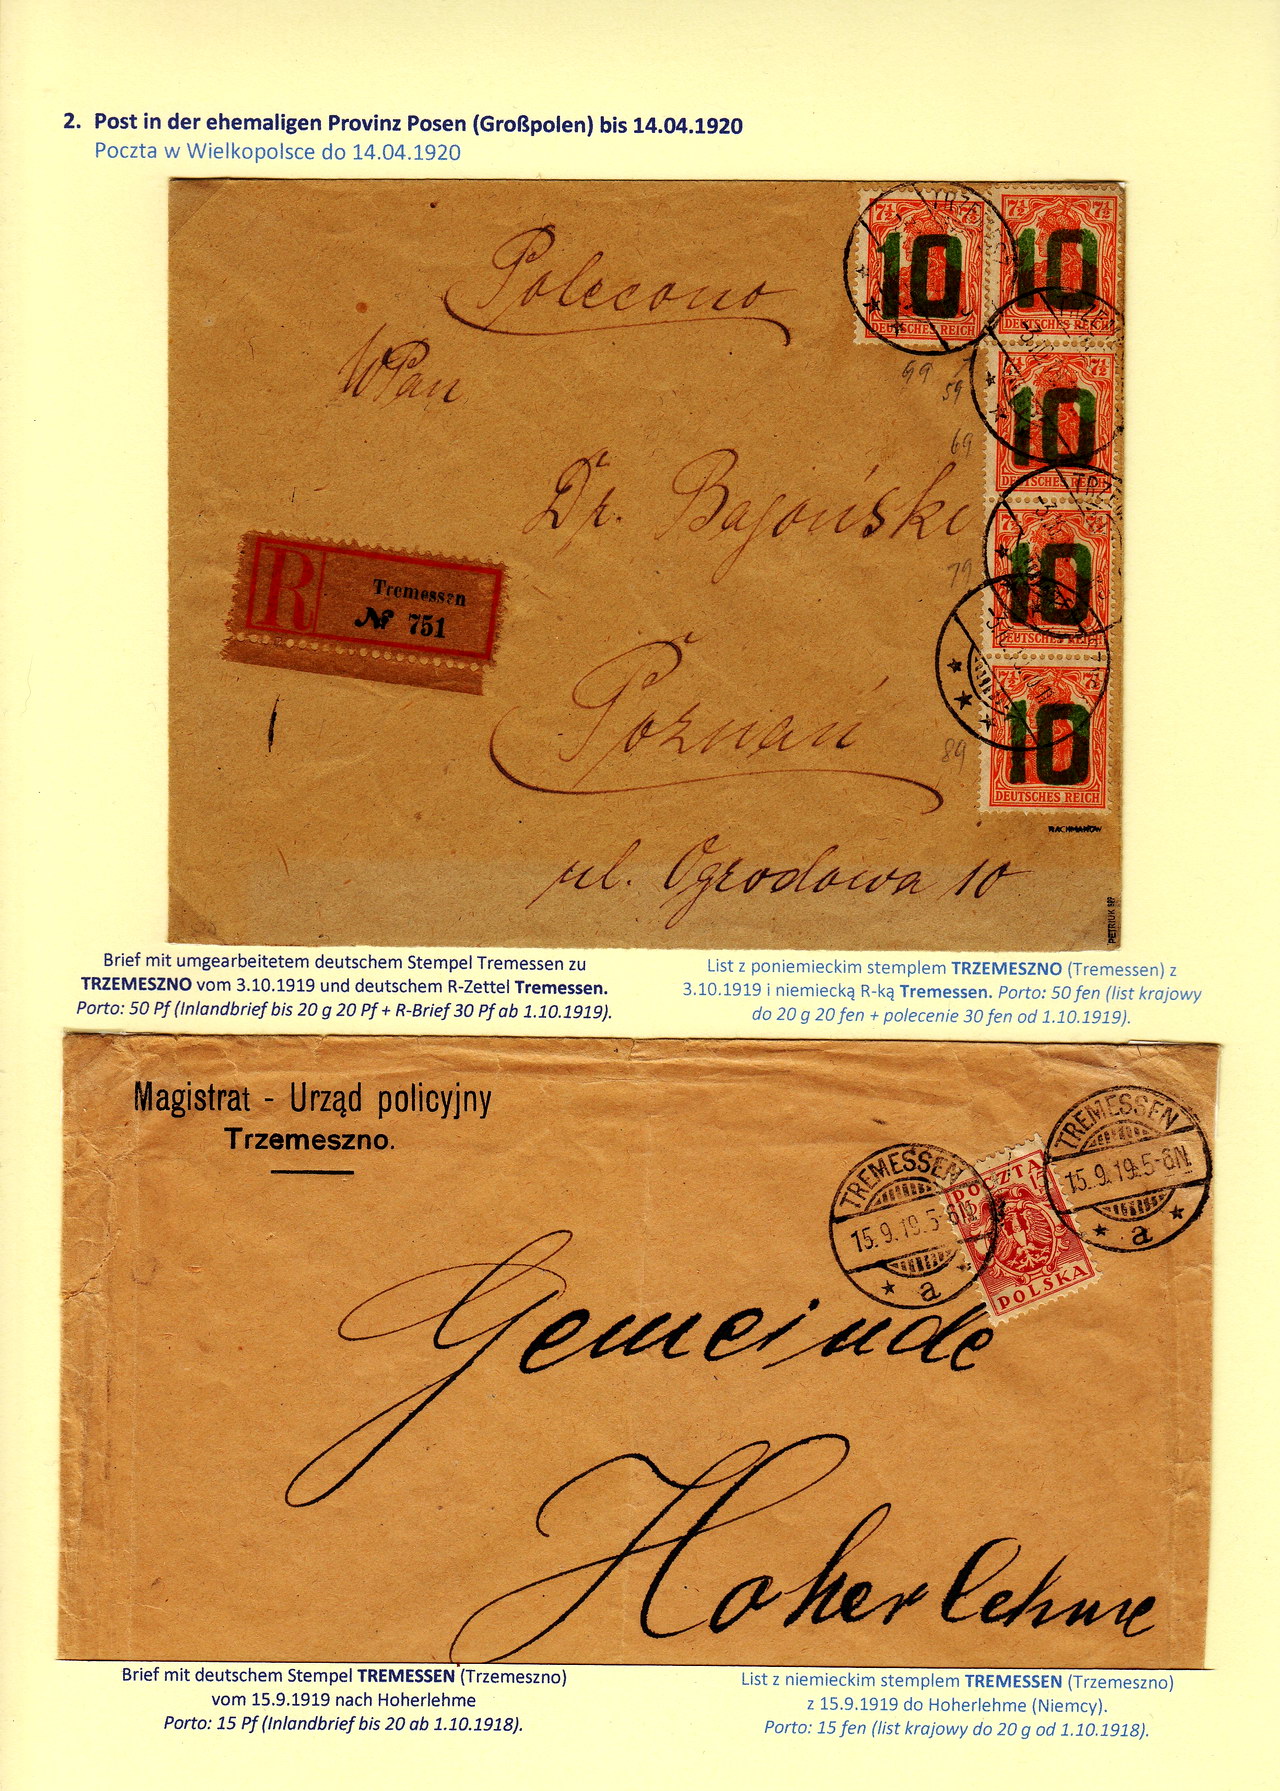 2. Post in der ehemaligen Provinz Posen (Großpolen) bis 14.04.1920
Poczta w Wielkopolsce do 14.04.1920
7½ 7½ 7½ 7½
10 10
DEUTSCHES REICH DEUTSCHES REICH
Polecono
WPan
7½ 7½
10
DEUTSCHES REICH
99
59
69
Dr. Bajoński
7½ 7½
10
DEUTSCHES REICH
79
R Tremessen
№ 751
Poznań
7½ 7½
10
DEUTSCHES REICH
89
RACHMANOW
ul. Ogrodowa 10
PETRIUK
Brief mit umgearbeitetem deutschem Stempel Tremessen zu
TRZEMESZNO vom 3.10.1919 und deutschem R-Zettel Tremessen.
Porto: 50 Pf (Inlandbrief bis 20 g 20 Pf + R-Brief 30 Pf ab 1.10.1919).
List z poniemieckim stemplem TRZEMESZNO (Tremessen) z
3.10.1919 i niemiecką R-ką Tremessen. Porto: 50 fen (list krajowy
do 20 g 20 fen + polecenie 30 fen od 1.10.1919).
Magistrat - Urząd policyjny
Trzemeszno.
TREMESSEN
15.9.19.5-6N
a
POCZTA
15
POLSKA
TREMESSEN
15.9.19.5-6N
a
Gemeinde
Hoherlehme
Brief mit deutschem Stempel TREMESSEN (Trzemeszno)
vom 15.9.1919 nach Hoherlehme
Porto: 15 Pf (Inlandbrief bis 20 ab 1.10.1918).
List z niemieckim stemplem TREMESSEN (Trzemeszno)
z 15.9.1919 do Hoherlehme (Niemcy).
Porto: 15 fen (list krajowy do 20 g od 1.10.1918).